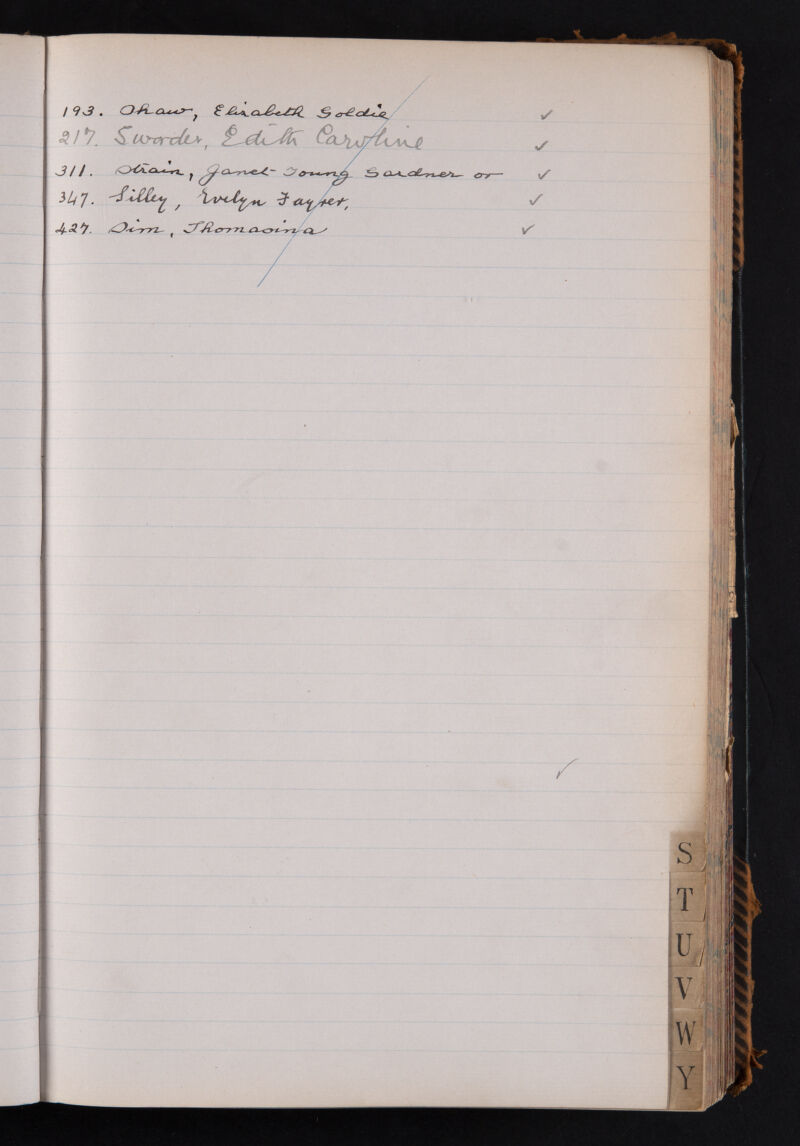 193. Shaw, Elizabeth Goldie ✓
217. Sworder, Edith Caroline ✓
311. Strain, Janet Young Gardner or ✓
347. Silley, Evelyn Fayrer, ✓
427. Sim, Thomasina ✓
✓
S
T
U
V
W
Y